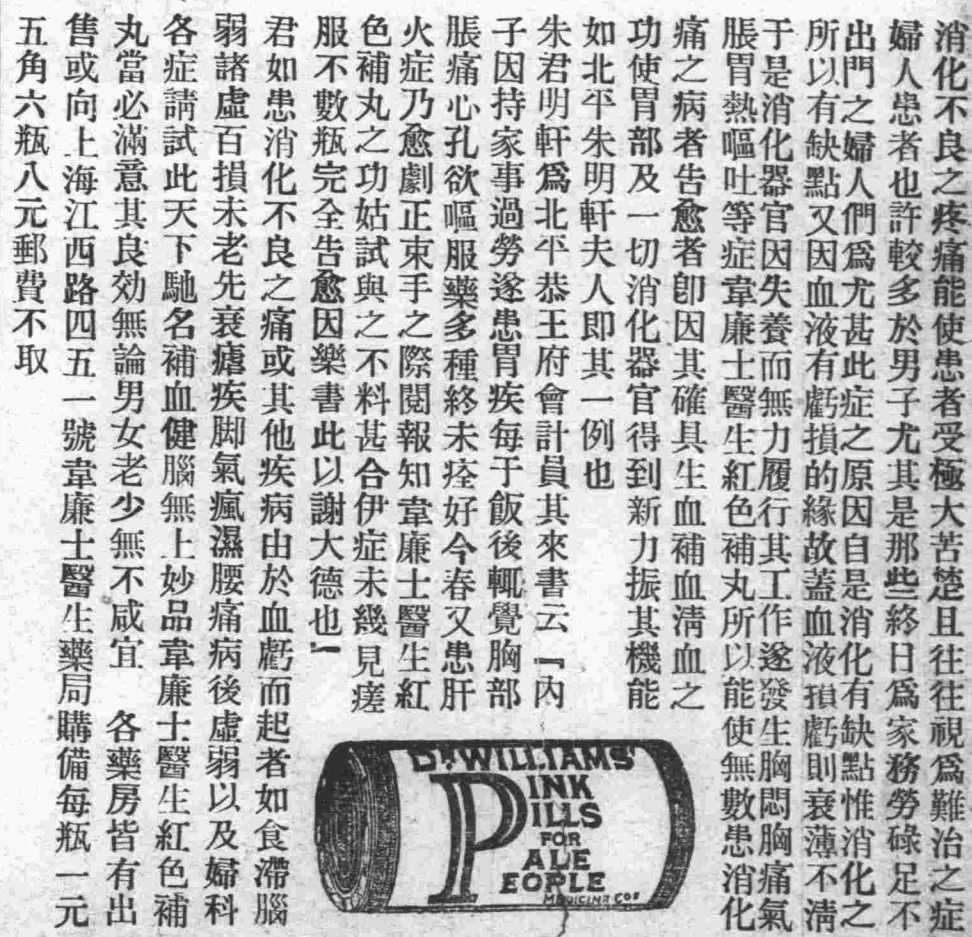 消化不良之疼痛能使患者受極大苦楚且往往視爲難治之症
婦人患者也許較多於男子尤其是那些終日爲家務勞碌足不
出門之婦人們爲尤甚此症之原因自是消化有缺點惟消化之
所以有缺點又因血液有虧損的緣故蓋血液損虧則衰薄不淸
于是消化器官因失養而無力履行其工作遂發生胸悶胸痛氣
脹胃熱嘔吐等症韋廉士醫生紅色補丸所以能使無數患消化
痛之病者告愈者卽因其確具生血補血淸血之
功使胃部及一切消化器官得到新力振其機能
如北平朱明軒夫人即其一例也
朱君明軒爲北平恭王府會計員其來書云『內
子因持家事過勞遂患胃疾每于飯後輒覺胸部
脹痛心孔欲嘔服藥多種終未痊好今春又患肝
火症乃愈劇正束手之際閱報知韋廉士醫生紅
色補丸之功姑試與之不料甚合伊症未幾見瘥
服不數瓶完全告愈因樂書此以謝大德也』
君如患消化不良之痛或其他疾病由於血虧而起者如食滯腦
弱諸虛百損未老先衰瘧疾脚氣瘋濕腰痛病後虛弱以及婦科
各症請試此天下馳名補血健腦無上妙品韋廉士醫生紅色補
丸當必滿意其良効無論男女老少無不咸宜 各藥房皆有出
售或向上海江西路四五一號韋廉士醫生藥局購備每瓶一元
五角六瓶八元郵費不取
DR WILLIAMS'
PINK
PILLS
FOR
PALE
PEOPLE
MEDICINE CO